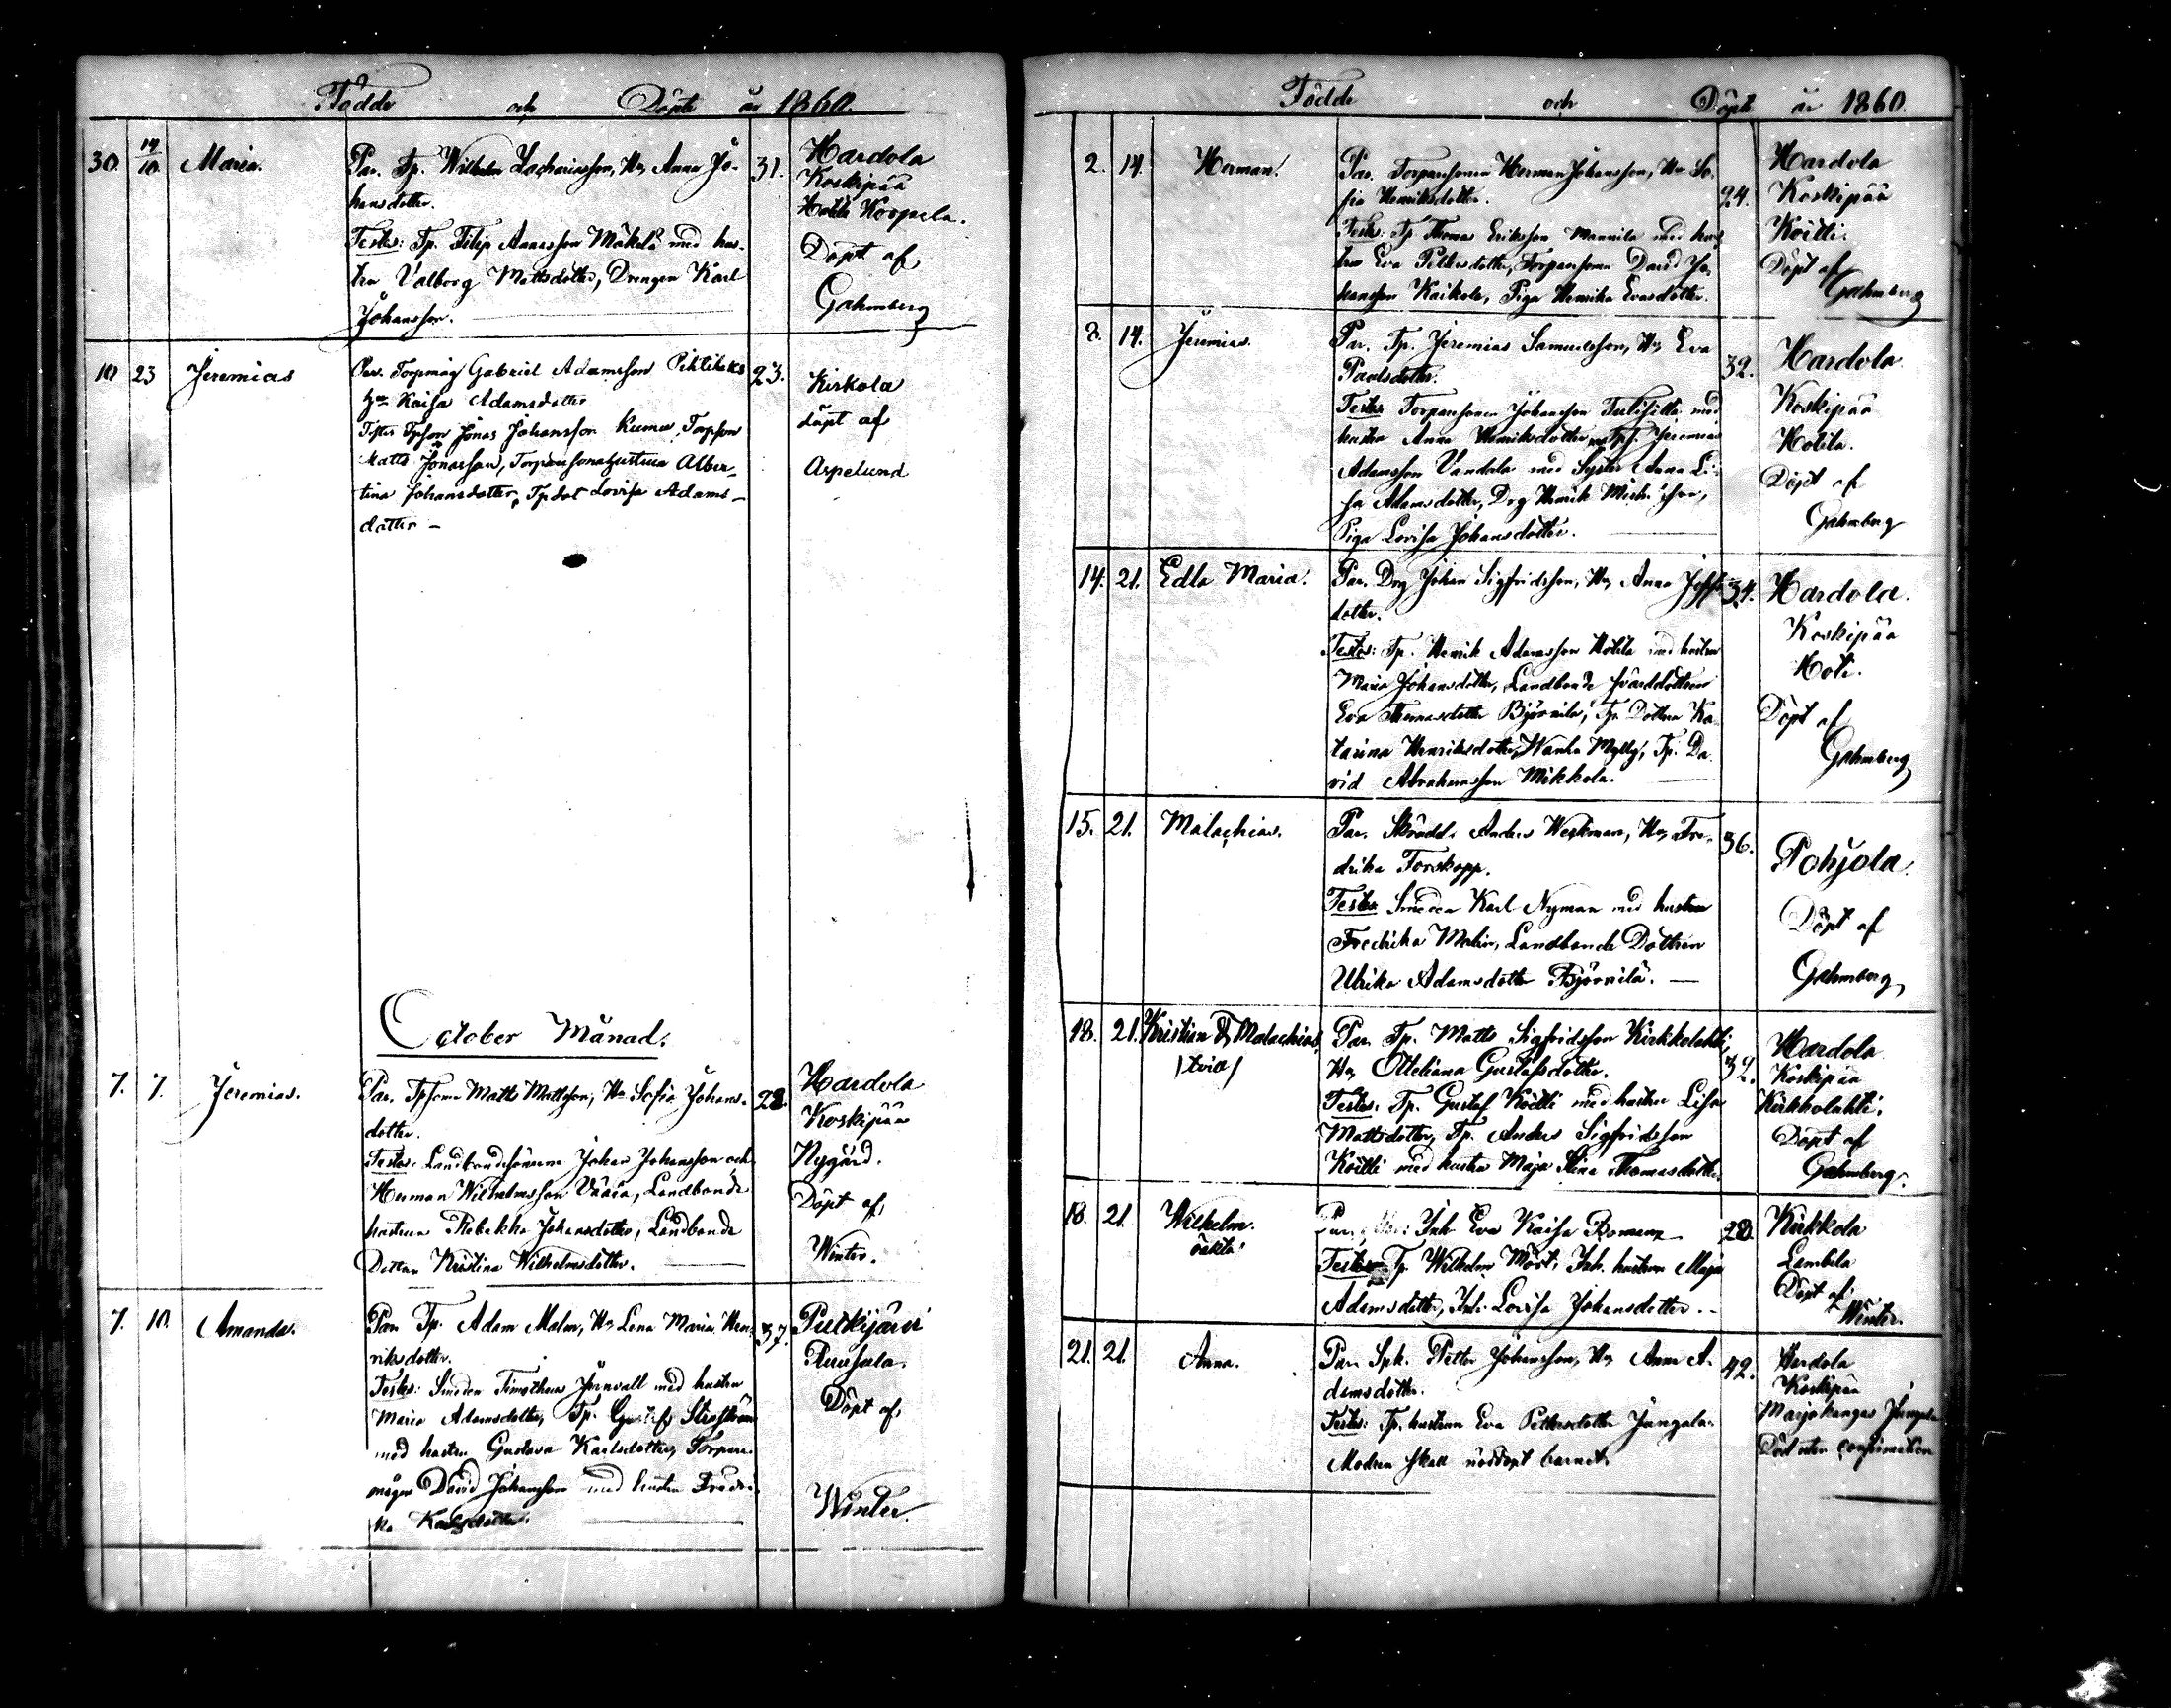 Födde och Döpte år 1860.
30. 14/10 Maria.
Par. Tp. Wilhelm Zachariasson, Hu Anna Jo-
hansdotter.
Testes: Tp. Filip Anarsson Mäkelä med hus-
tru Valborg Mattsdotter, Drengen Karl
Johansson.
31.
Hardola
Koskipää
Korpela.
Döpt af
Gahmberg
10 23 Jeremias
Par. Torpmåg Gabriel Adamsson
hu Kaisa Adamsdotter
Testes Tpson Jonas Johansson Torpson
Matts Jonasson, Torparsonahustrun Alber-
tina Johansdotter, Tpdot Lovisa Adams-
dotter –
23.
Kirkola
döpt af
Aspelund
October Månad.
7. 7. Jeremias.
Par. Tpson Matts Mattsson, Hu Sofia Johans-
dotter.
Testes. Landbondesönerne Johan Johansson och
Herman Wilhelmsson Vääriä, Landbonde
hustrun Rebekka Johansdotter, Landbonde
Dottren Kristina Wilhelmsdotter.
28.
Hardola
Koskipää
Nygård.
Döpt af
Winter.
7. 10. Amanda.
Par Tp. Adam Malm, Hu Lena Maria Hen-
riksdotter.
Testes: Smeden Timotheus Jernvall med hustru
Maria Adamsdotter, Tp. Gustaf
med hustru Gustava Karlsdotter, Torpare-
mågen David Johansson med hustru Fredri-
ka Karlsdotter.
37.
Putkijärvi
Döpt af
Winter.
Födde och Döpte år 1860.
2. 14. Herman.
Par. Torparsonen Herman Johansson, Hu So-
fia Henriksdotter.
Testes: Tp Thomas Eriksson Mannila med hus
tru Eva Pettersdotter, Torparsonen David Jo-
hansson Kaikola, Piga Henrika Evasdotter.
24.
Hardola
Koskipää
Köitti.
Döpt af
Gahmberg
8. 14. Jeremias.
Par. Tp. Jeremias Samuelsson, Hu Eva
Paulsdotter.
Testes Torparsonen Johansson med
hustru Anna Henriksdotter, Jeremias
Adamsson Vandala med Syster Anna Li-
sa Adamsdotter, Drg Henrik
Piga Lovisa Johansdotter.
32.
Hardola
Koskipää
Hotila.
Döpt af
Gahmberg
14. 21. Edla Maria.
Par. Drg Johan Sigfridsson, Hu Anna
dotter.
Testes: Tp. Henrik Adamsson Hotila med hustru
Maria Johansdotter, Landbonde
Eva Thomasdotter Björnilä, Tp. Dottern Ka-
tarina Henriksdotter, Wanha Mylly, Tp. Da-
vid Abrahamsson Mikkola.
34.
Hardola.
Koskipää
Hoti.
Döpt af
Gahmberg
15. 21. Malachias.
Par. Skrädd. Anders Werkman, Hu Fre-
drika Forskopp.
Testes Smeden Karl Nyman med hustru
Fredrika Malin, Landbonde Dottren
Ulrika Adamsdotter Björnilä.
36.
Pohjola.
Döpt af
Gahmberg
18. 21. Kristian & Malachias,
Par. Tp. Matts Sigfridsson Kirkkolahti,
Hu Otteliana Gustafsdotter.
Testes. Tp. Gustaf Köitti med hustru Lisa
Mattsdotter, Tp. Anders Sigfridsson
Köitti med hustru Maja Stina Thomasdotter
Hardola
Koskipää
Kirkkolahti.
Döpt af
Gahmberg.
18. 21. Wilhelm.
oäkta
Inh Eva Kaisa Boman
Testes Tp. Wilhelm Inh. hustrun Maja
Adamsdotter, Inh. Lovisa Johansdotter.
28.
Kirkkola
Lambila
Döpt af
Winter.
21. 21. Anna.
Par. Sph. Petter Johansson, Hu Anna A-
damsdotter.
Testes: Tp. hustrun Eva Pettersdotter Jungala.
Modren skall nöddöpt barnet.
42.
Hardola
Koskipää
Marjakangas
Död utan confirmation